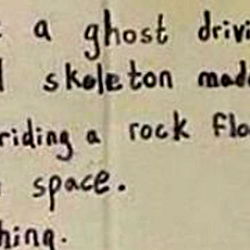 a ghost drivi
skeleton made
riding a rock flo
space.
hing.